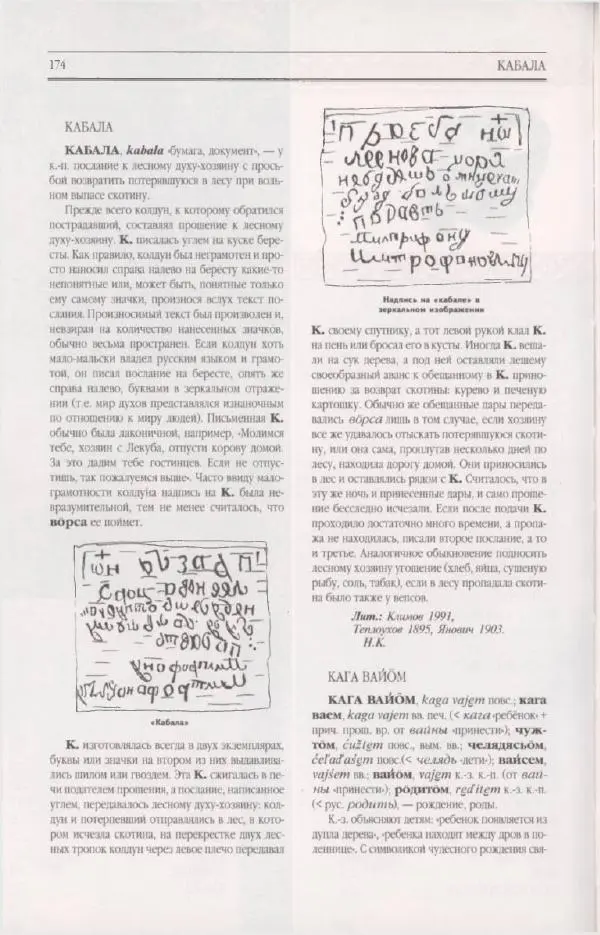 174
КАБАЛА
КАБАЛА
КАБАЛА, kabala ‹бумага, документ›, — у
к.-п. послание к лесному духу-хозяину с прось-
бой возвратить потерявшуюся в лесу при воль-
ном выпасе скотину.
Прежде всего колдун, к которому обратился
пострадавший, составлял прошение к лесному
духу-хозяину. К. писалась углем на куске бере-
сты. Как правило, колдун был неграмотен и про-
сто наносил справа налево на бересту какие-то
непонятные или, может быть, понятные только
ему самому значки, произнося вслух текст по-
слания. Произносимый текст был произволен и,
невзирая на количество нанесенных значков,
обычно весьма пространен. Если колдун хоть
мало-мальски владел русским языком и грамо-
той, он писал послание на бересте, опять же
справа налево, буквами в зеркальном отраже-
нии (т.е. мир духов представлялся изнаночным
по отношению к миру людей). Письменная К.
обычно была лаконичной, например, ‹Молимся
тебе, хозяин с Лекуба, отпусти корову домой.
За это дадим тебе гостинцев. Если не отпус-
тишь, так пожалуемся выше›. Часто ввиду мало-
грамотности колдуна надпись на К. была не-
вразумительной, тем не менее считалось, что
вöрса ее поймет.
«Кабала»
К. изготовлялась всегда в двух экземплярах,
буквы или значки на втором из них выдавлива-
лись шилом или гвоздем. Эта К. сжигалась в пе-
чи подателем прошения, а послание, написанное
углем, передавалось лесному духу-хозяину: кол-
дун и потерпевший отправлялись в лес, в кото-
ром исчезла скотина, на перекрестке двух лес-
ных тропок колдун через левое плечо передавал
Надпись на «кабале» в
зеркальном изображении
К. своему спутнику, а тот левой рукой клал К.
на пень или бросал его в кусты. Иногда К. веша-
ли на сук дерева, а под ней оставляли лешему
своеобразный аванс к обещанному в К. прино-
шению за возврат скотины: курево и печеную
картошку. Обычно же обещанные дары переда-
вались вöрса лишь в том случае, если хозяину
все же удавалось отыскать потерявшуюся скоти-
ну, или она сама, проплутав несколько дней по
лесу, находила дорогу домой. Они приносились
в лес и оставлялись рядом с К. Считалось, что в
эту же ночь и принесенные дары, и само проше-
ние бесследно исчезали. Если после подачи К.
проходило достаточно много времени, а пропа-
жа не находилась, писали второе послание, а то
и третье. Аналогичное обыкновение подносить
лесному хозяину угощение (хлеб, яйца, сушеную
рыбу, соль, табак), если в лесу пропадала скоти-
на было также у вепсов.
Лит.: Климов 1991,
Теплоухов 1895, Янович 1903.
Н.К.
КАГА ВАЙÖМ
КАГА ВАЙÖМ, kaga vajem повс.; кага
ваем, kaga vajem вв. печ. (< кага ‹ребёнок› +
прич. прош. вр. от вайны ‹принести›); чуж-
тöм, ćužtem повс., вым. вв.; челядясьöм,
ćeĺaďaśem повс.(< челядь ‹дети›); вайсем,
vajśem вв.; вайöм, vajem к.-з. к.-п. (от вай-
ны ‹принести›); рöдитöм,ređitem к.-з. к.-п.
(< рус. родить), — рождение, роды.
К.-з. объясняют детям: ‹ребенок появляется из
дупла дерева›, ‹ребенка находят между дров в по-
леннице›. С символикой чудесного рождения свя-